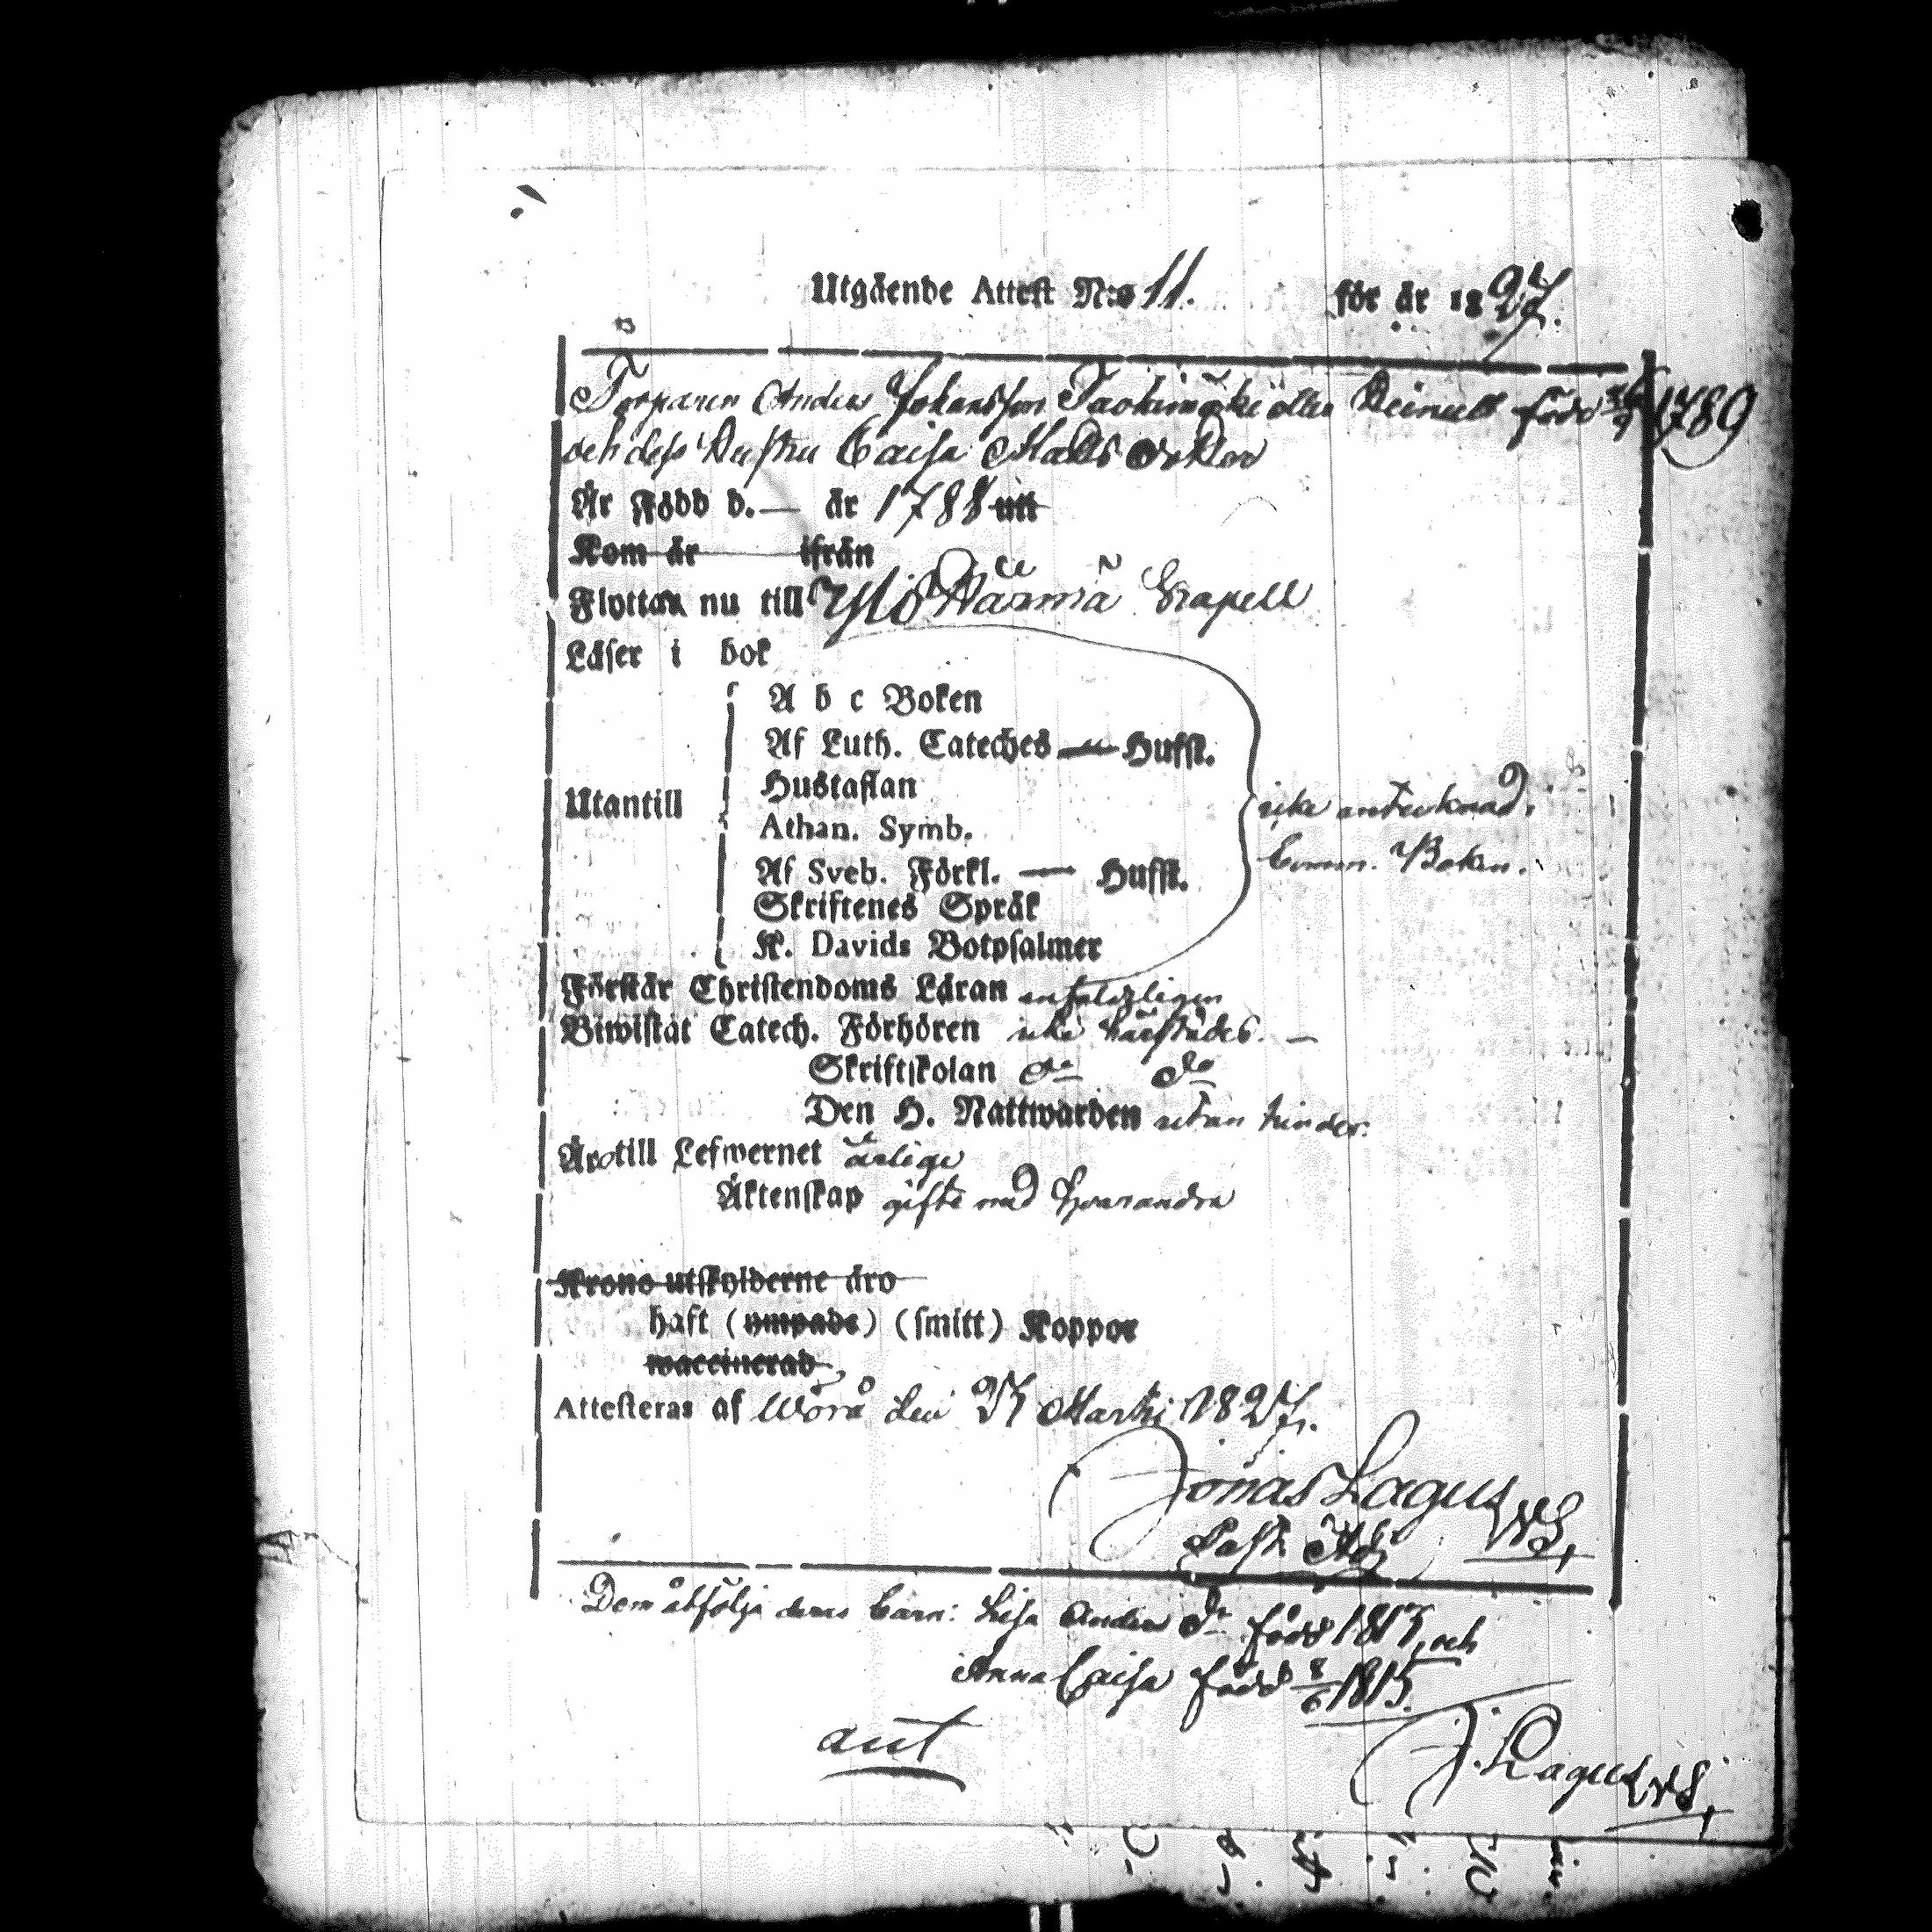 Utgående Attest N:o 11. för år 1827.
Torparen Anders Johansson eller född 1789
och dess Hustru Caisa Matts Dotter
Är Född d. — år 1788 uti
Kom år ifrån
Flyttar nu till Ylihärmä Capell
Läser i bok
A b c Boken
Af Luth. Cateches — Hufst.
Hustaflan
Utantill
Athan. Symb.
icke antecknad i
Comm. Boken.
Af Sveb. Förkl. — Hufst.
Skriftenes Språk
K. Davids Botpsalmer
Förstår Christendoms Läran enfaldigligen
Biwistat Catech. Förhören icke härstädes. —
Skriftskolan do do
Den H. Nattwarden utan hinder.
Äro till Lefwernet ärlige
Äktenskap gifte med hvarandra
Krono utskylderne äro
haft (ympade) (smitt) Koppor
waccinerad
Attesteras af Wörå den Martii 1827.
Jonas Lagus
Past. Adj.
Dem åtfölja deras barn: Lisa Anders dr född 1813, och
Anna Caisa född 8/6 1815.
ant
J. Lagus